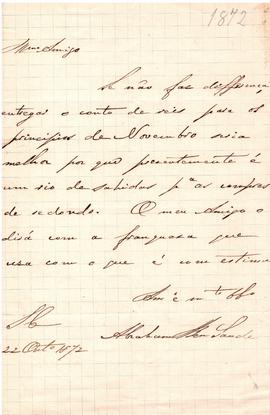 1872
Meu Amigo
Se não faz differença
entregar o conto de reis para os
principios de Novembro seria
melhor por que presentemente é
um rio de subidas pª as compras
de redondo. O meu Amigo o
dirá com a franqueza que
usa com o que é com estima
Am.º e m.to Obº
SC
22 Outº 1872
Abraham Ben Saude